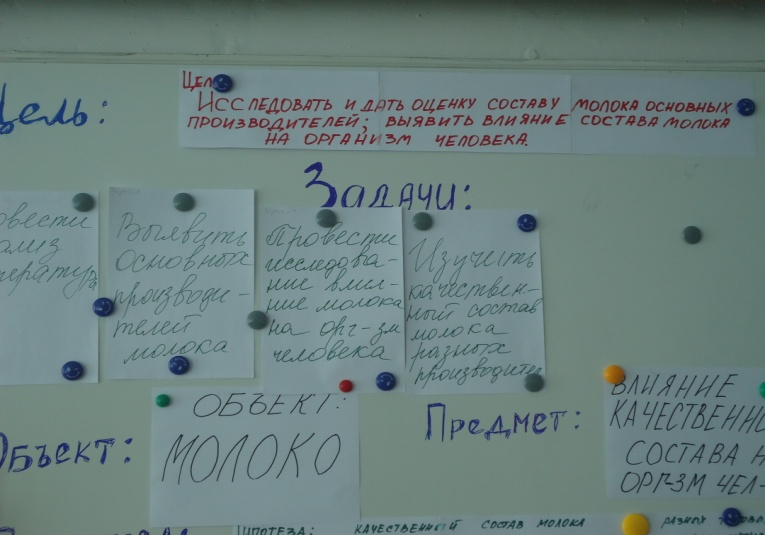 Цель:
Цел
Исследовать и дать оценку составу молока основных
производителей; выявить влияние состава молока
на организм человека.
Задачи:
овести
ализ
тературы
Выявить
основных
производи-
телей
молока
Провести
исследова-
ние влия-
ние молока
на орг-зм
человека
Изучить
качествен-
ный состав
молока
разных
производител
Объект:
ОБЪЕКТ:
МОЛОКО
Предмет:
ВЛИЯНИЕ
КАЧЕСТВЕННО
СОСТАВА Н
ОРГ-ЗМ ЧЕЛ-
ИПОТЕЗА: КАЧЕСТВЕННЫЙ СОСТАВ МОЛОКА РАЗНЫХ